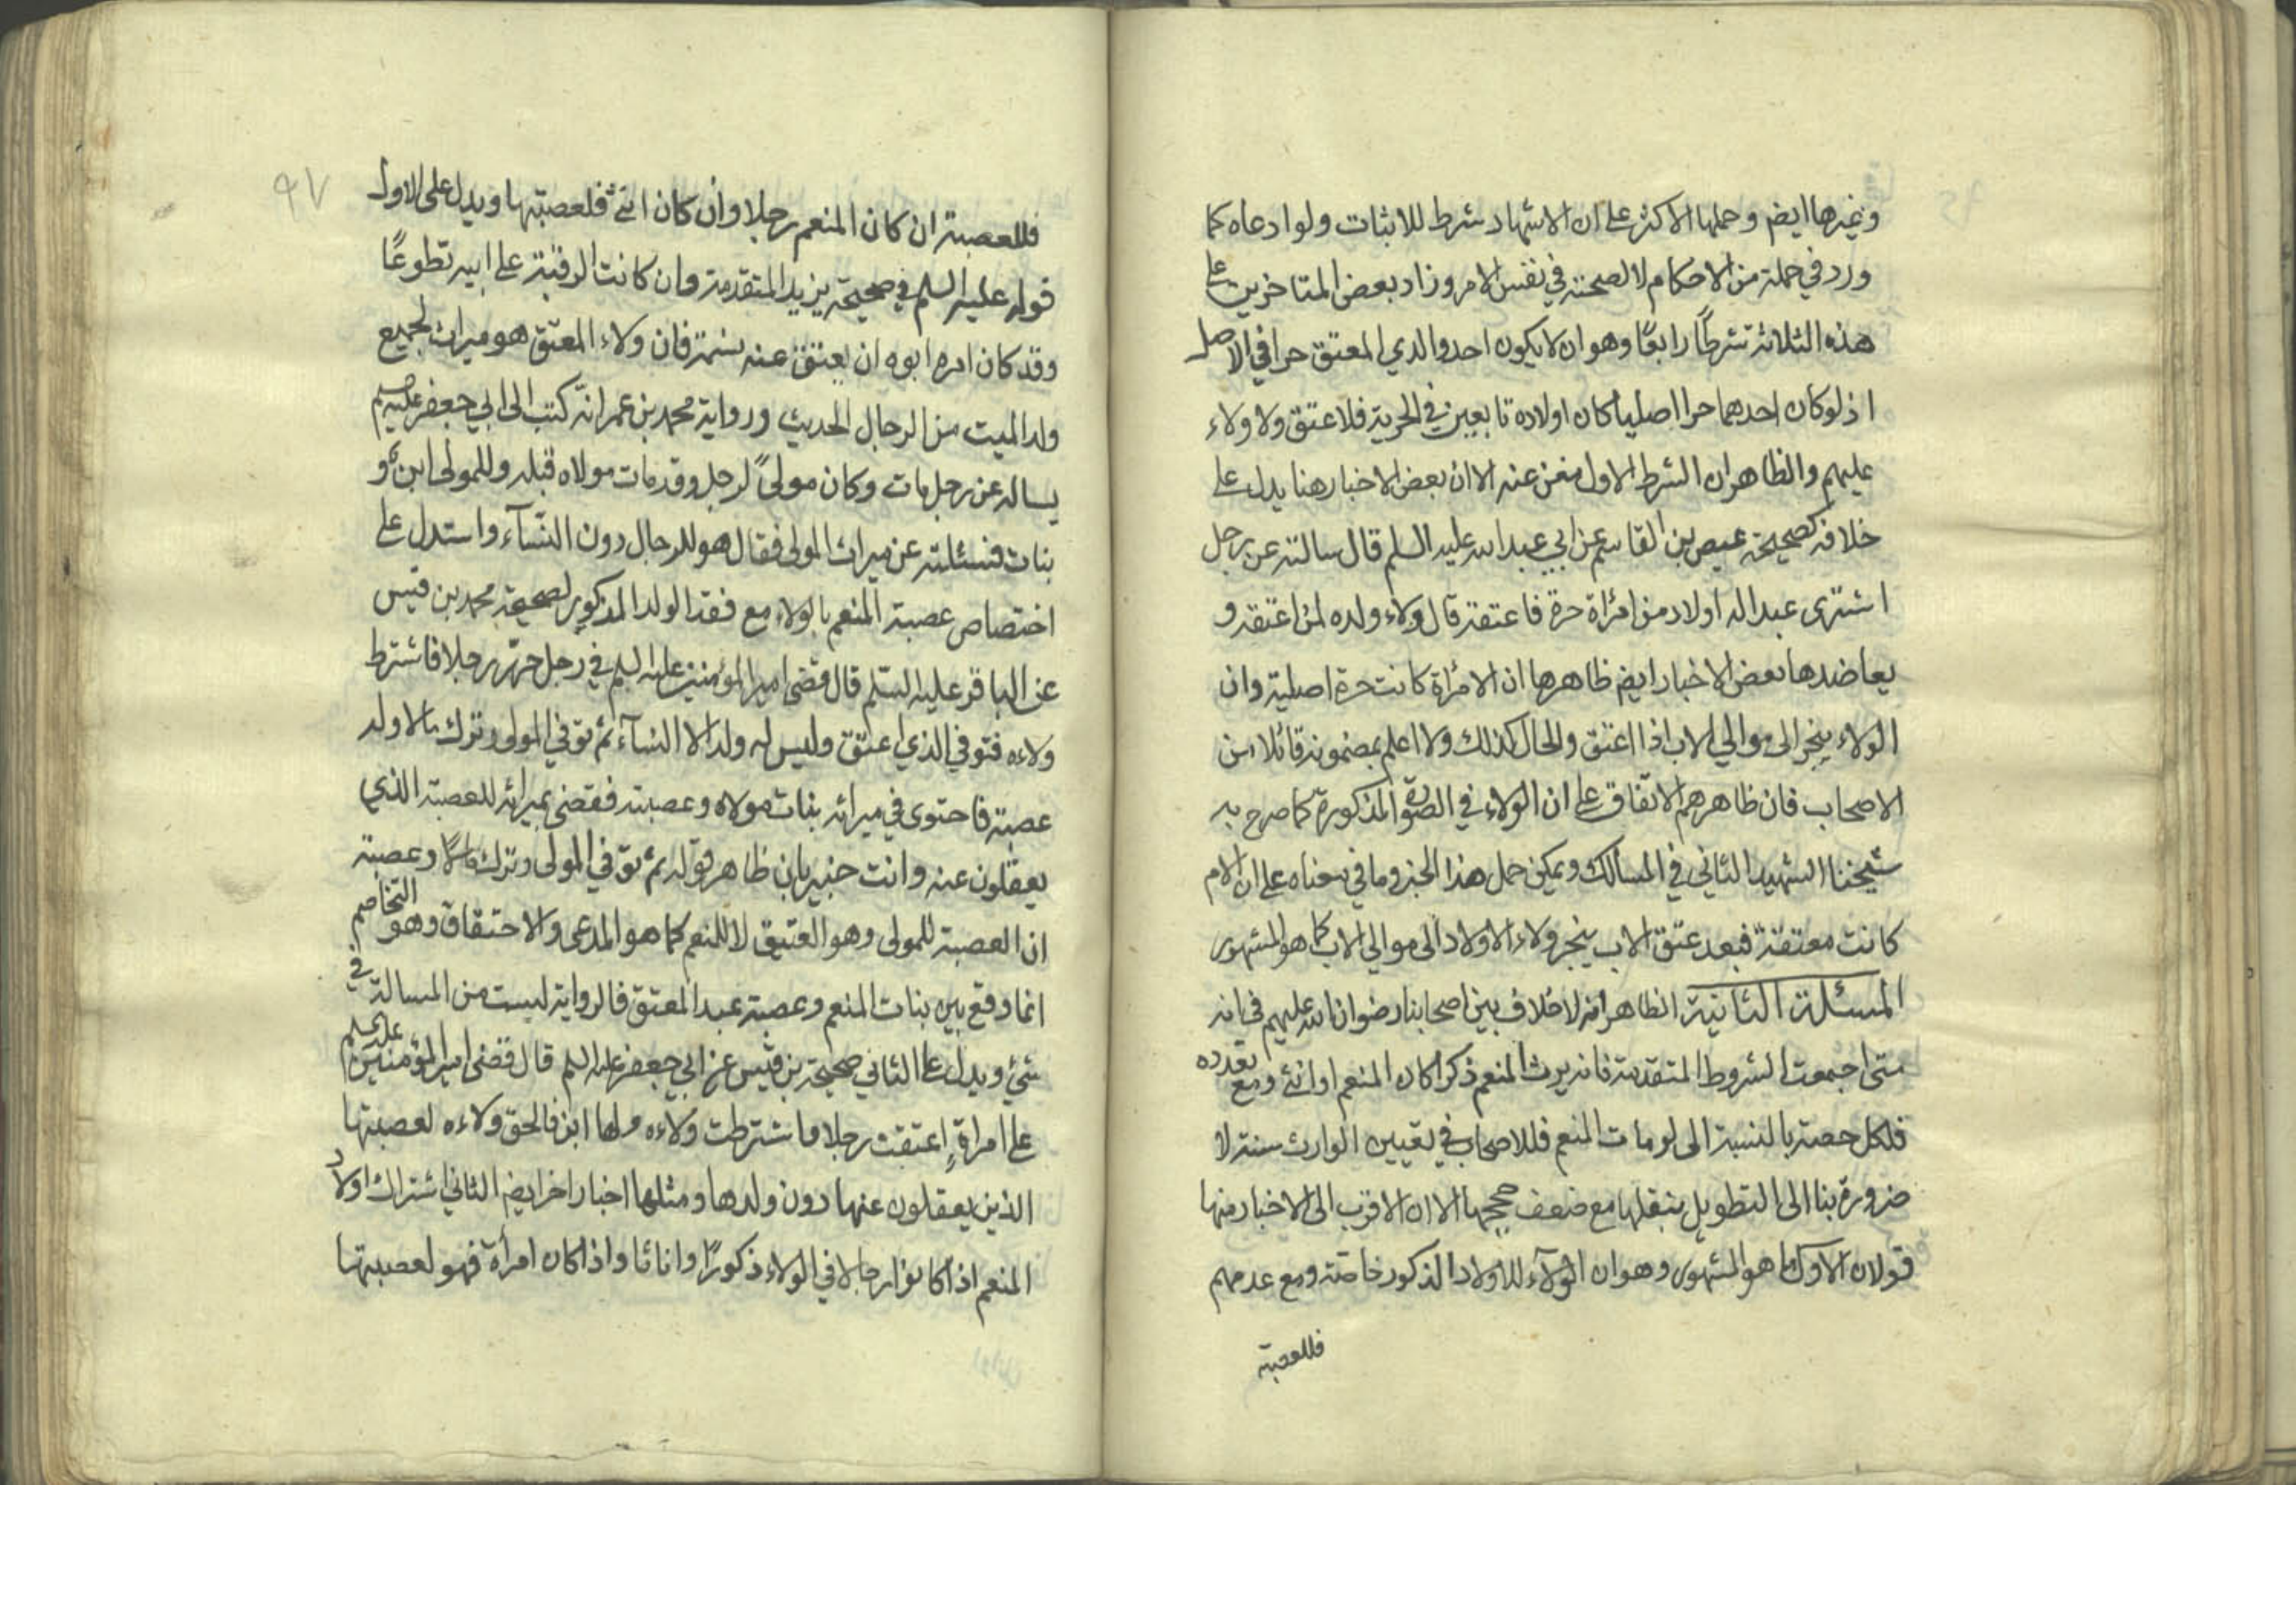 وغيرها ايضم وحملها الاكثر على ان الاشهاد شرط للاثبات ولو ادعاه كما
ورد في جملة من الاحكام لا لصحته في نفس الامر وزاد بعض المتاخرين على
هذه الثلاثة شرطًا رابعًا وهو ان لا يكون احد والدي المعتق حرا في الاصل
اذ لو كان احدهما حرا اصليا كان اولاده تابعين في الحرية فلا عتق ولا ولاء
عليهم والظاهر ان الشرط الاول مغن عنه الا ان بعض الاخبار هنا يدل على
خلافه كصحيحة عيص بن القاسم عن ابي عبد الله عليه السلم قال سالته عن رجل
اشترى عبدا له اولاد من امرأة حرة فاعتقه قال ولاء ولده لمن اعتقه و
يعاضدها بعض الاخبار ايضم ظاهرها ان الامرأة كانت حرة اصلية وان
الولاء ينجر الى موالي الاب اذا اعتق والحال كذلك ولا اعلم بمضمونه قائلا من
الاصحاب فان ظاهرهم الاتفاق على ان الولاء في الصورة المذكورة كما صرح به
شيخنا الشهيد الثاني في المسالك ويمكن حمل هذا الخبر وما في معناه على ان الام
كانت معتقة فبعد عتق الاب ينجر ولاء الاولاد الى موالي الاب كما هو المشهور
المسئلة الثانية الظاهر انه لا خلاف بين اصحابنا رضوان الله عليهم في انه
متى اجمعت الشروط المتقدمة فانه يرث المنعم ذكرا كان المنعم او انثى ومع تعدده
فلكل حصته بالنسبة الى لو مات المنعم فللاصحاب في تعيين الوارث ستة لا
ضرورة بنا الى التطويل بنقلها مع ضعف حججها الا ان الاقرب الى الاخبار منها
قولان الاول ما هو المشهور وهو ان الولاء للاولاد الذكور خاصة ومع عدمهم
فللعصبة
٩٧
فللعصبة ان كان المنعم رجلا وان كان انثى فلعصبتها ويدل على الاول
قوله عليه السلم في صحيحة يزيد المتقدمة وان كانت الرقبة على ابيه تطوعًا
وقد كان امره ابوه ان يعتق عنه نسمة فان ولاء المعتق هو ميراث لجميع
ولد الميت من الرجال الحديث ورواية محمد بن عمر انه كتب الى ابي جعفر عليه السلم
يساله عن رجل مات وكان مولىً لرجل وقد مات مولاه قبله وللمولى ابن و
بنات فسئلته عن ميراث المولى فقال هو للرجال دون النسآء واستدل على
اختصاص عصبة المنعم بالولاء مع فقد الولد المذكور لصحيحة محمد بن قيس
عن الباقر عليه السلم قال قضى امير المؤمنين عليه السلم في رجل حرر رجلا فاشترط
ولاءه فتوفي الذي اعتق وليس له ولد الا النسآء ثم توفي المولى وترك مالا وله
عصبة فاحتوى في ميراثه بنات مولاه وعصبته فقضى بميراثه للعصبة الذي
يعقلون عنه وانت خبير بان ظاهر قوله ثم توفي المولى وترك مالا وعصبة
ان العصبة للمولى وهو العتيق لا للمنعم كما هو المدعى والاحتقاق وهو التخاصم
انما وقع بين بنات المنعم وعصبة عبد المعتق فالرواية ليست من المسالة في
شئ ويدل على الثاني صحيحة بن قيس عن ابي جعفر عليه السلم قال قضى امير المؤمنين عليه السلم
على امراةٍ اعتقت رجلا واشترطت ولاءه ولها ابن فالحق ولاءه لعصبتها
الذين يعقلون عنها دون ولدها ومثلها اخبار اخر ايضم الثاني اشتراك اولاد
المنعم اذا كانوا رجالا في الولاء ذكورًا واناثا واذا كان امرأة فهو لعصبتها